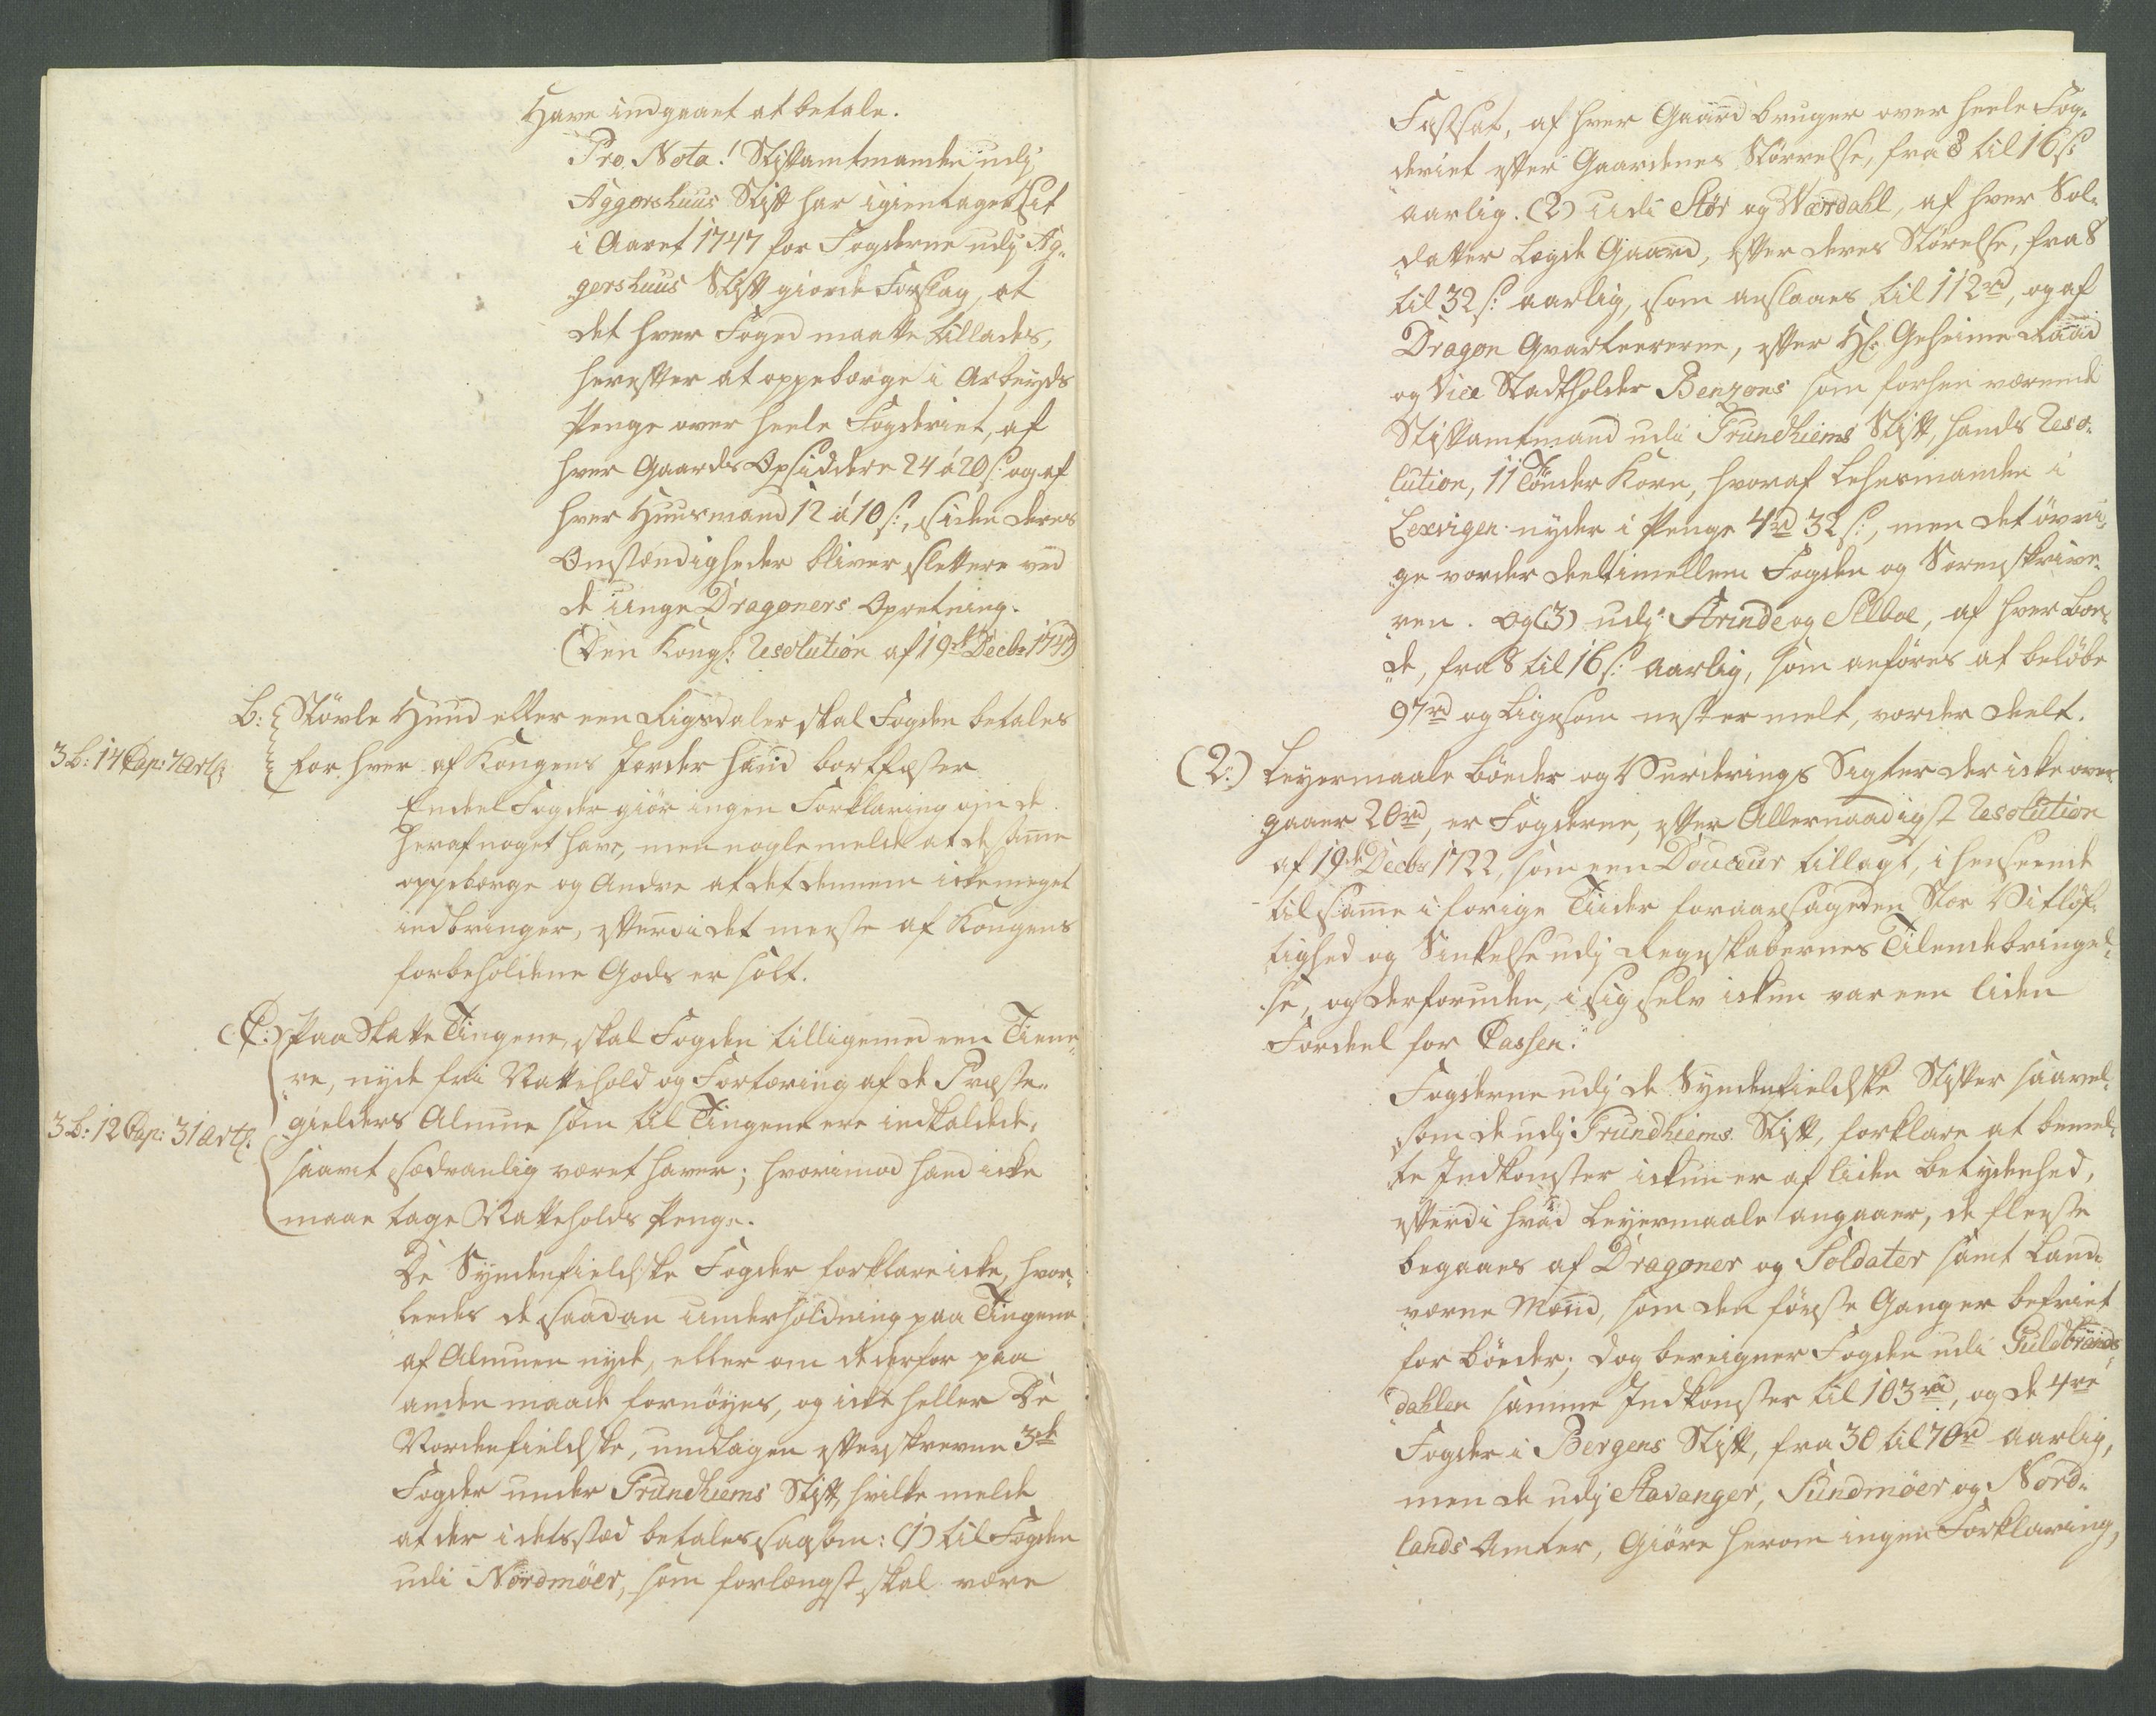 Have indgaaet at betale.
Pro Nota! Stiftamtmanden udj
Aggershuus Stift har igientaget sit
i Aaret 1747 for Fogderne udj Ag-
gershuus Stift giorde Forslag, at
det hver Foged maatte tillades,
herefter at oppebærge i Arbeyds
Penge over heele Fogderiet, af
hver Gaards Opsiddere 24 á 20 s: og af
hver Huusmand 12 á 10 s:, siden deres
Omstændigheder bliver slettere ved
de unge Dragoners Opretning.
(Den Kongl: Resolution af 19de Decbr 1747)
B: Støvle Hund eller een Rigsdaler skal Fogden betales
3 B: 14 Cap: 7 Artl: for hver af Kongens Jorder hand bortfæster
Endeel Fogder giør ingen Forklaring om de
heraf noget have, men nogle melde at de samme
oppebærge og Andre at det dennem icke meget
indbringer, efterdi det meeste af Kongens
forbeholdene Gods er solt.
(C:) Paa Skatte Tingene, skal Fogden tilligemed een Tiene-
re, nyde frii Nattehold og Fortæring af de Præste-
3 B: 12 Cap: 31 Artl: gielders Almue som til Tingene ere indkaldede,
saavit sædvanlig været haver; hvorimod hand icke
maae tage Natteholds Penge.
De Syndenfieldske Fogder forklare icke, hvor-
leedes de saadan underholdning paa Tingene
af Almuen nyde, eller om de derfor paa
anden maade fornøyes, og icke heller De
Nordenfieldske, undtagen efterskrevne 3de
Fogder under Trundhiems Stift, hvilke melde
at der i dets sted betales saasom: (1) til Fogden
udi Nordmöer, som forlængst skal være
Fastsat, af hver Gaard bruger over heele Fog-
deriet efter Gaardenes Størrelse, fra 8 til 16 s:
aarlig. (2) udi Stør og Wærdahl, af hver Sol-
dater Legde Gaard, efter deres Størelse, fra 8
til 32 s: aarlig, som anslaaes til 112 rd, og af
Dragon Qvarteererne, efter Hr: Geheime Raad
og Vice Stadtholder Benzons som forhen værende
Stiftamtmand udi Trundhiems Stift, hands Reso-
lution, 11 Tønder Korn, hvoraf Lehnsmanden i
Lexvigen nyder i Penge 4 rd 32 s:, men det øvri-
ge vorder deelt imellem Fogden og Sorenskrive-
ren. Og (3) udj Strinde og Selboe, af hver Bon-
de, fra 8 til 16 s: aarlig, som anføres at beløbe
97 rd og ligesom nest er melt, vorder deelt.
(2:) Leyermaals Bøeder og Vurderings Sigter der icke over-
gaaer 20 rd, er Fogderne, efter Allernaadigst Resolution
af 19de Decbr 1722, som een Douceur tillagt, i henseende
til samme i forige Tiider foraarsageden Stor Vitløf-
tighed og Sinkelse udj Regnskabernes Tilendebringel-
se, og derforuden, i sig selv ickun var een liden
Fordeel for Cassen.
Fogderne udj de Syndenfieldske Stifter saavel-
som de udj Trundhiems Stift, forklare at bemel-
te Indkomster ickun er af liden Betydenhed,
efterdi hvad Leyermaale angaaer, de fleeste
begaaes af Dragoner og Soldater samt Land-
værne Mænd, som den første Gang er befriet
for Bøeder; dog bereigner Fogden udi Guldbrands-
dahlen samme Indkomster til 103 rd, og de 4re
Fogder i Bergens Stift, fra 30 til 70 rd aarlig,
men de udj Stavanger, Sundmöer og Nord-
lands Amter, Giøre herom ingen Forklaring,